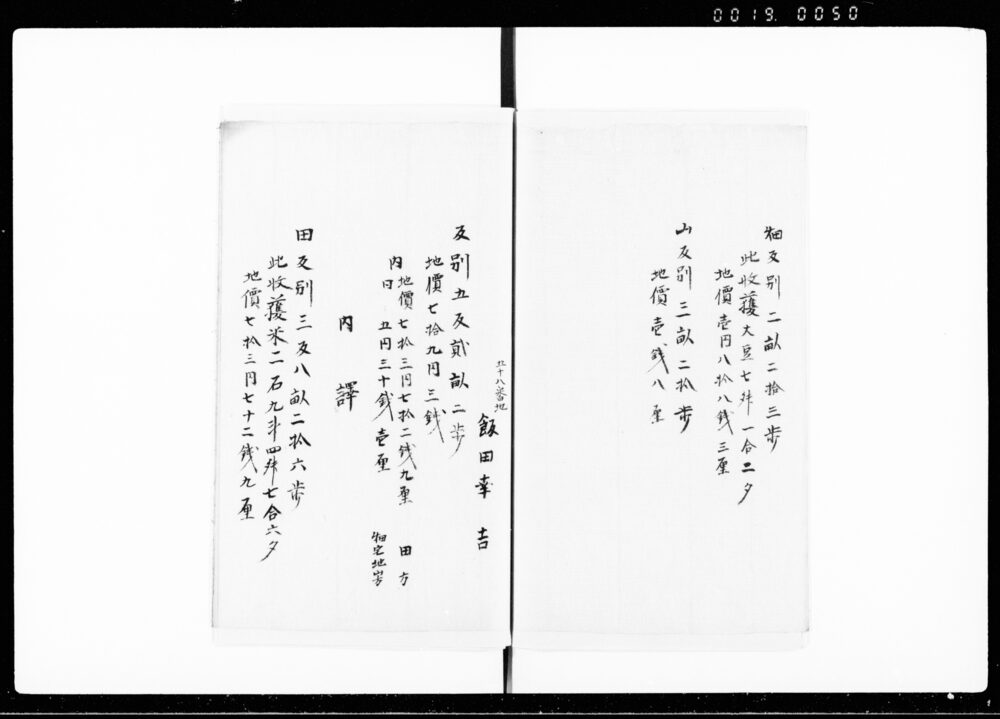 0019.0050
畑反別二畝二拾三歩
此収穫大豆七舛一合二夕
地價壱円八拾八銭三厘
山反別三畝二拾歩
地價壱銭八厘
五十八番地
飯田幸吉
反別五反貳畝二歩
地價七拾九円三銭
内地價七拾三円七拾二銭九厘 田方
内日五円三十銭壱厘 畑宅地山
内譯
田反別三反八畝二拾六歩
此收護米二石九斗四舛七合六夕
地價七拾三円七十二銭九厘